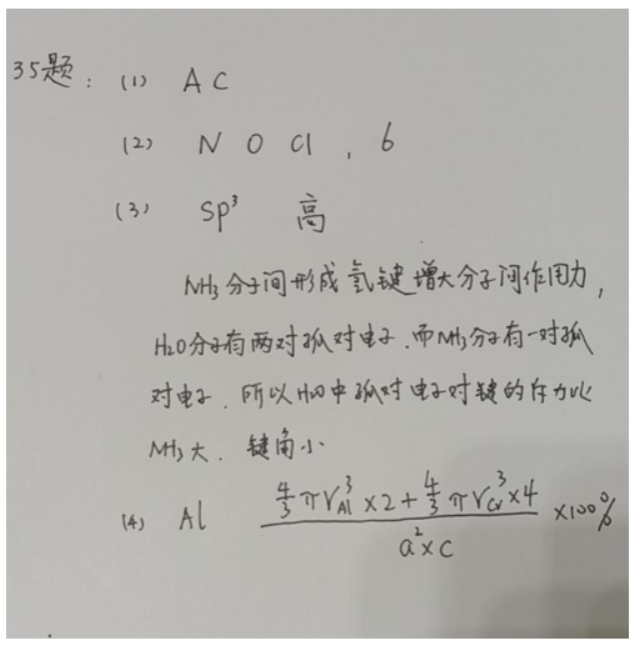 35题：(1) A C
(2) N O Cl , 6
(3) sp³ 高
NH₃分子间形成氢键增大分子间作用力，
H₂O分子有两对孤对电子.而NH₃分子有一对孤
对电子. 所以H₂O中孤对电子对键的斥力比
NH₃大. 键角小.
(4) Al \frac{\frac{4}{3}πr_{Al}^3×2+\frac{4}{3}πr_{Cr}^3×4}{a²×c}×100%